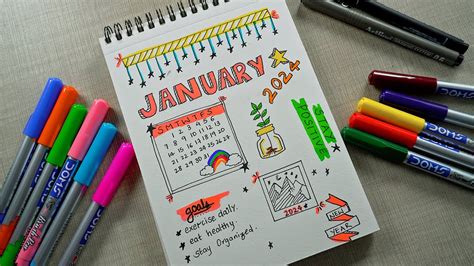 JANUARY
2024
S M T W T F S
1 2 3 4 5 6
7 8 9 10 11 12 13
14 15 16 17 18 19 20
21 22 23 24 25 26 27
28 29 30 31
STAY
POSITIVE
goals
exercise daily.
eat healthy.
Stay Organized.
2024
NEW
YEAR
DOMS
DOMS
DOMS
DOMS